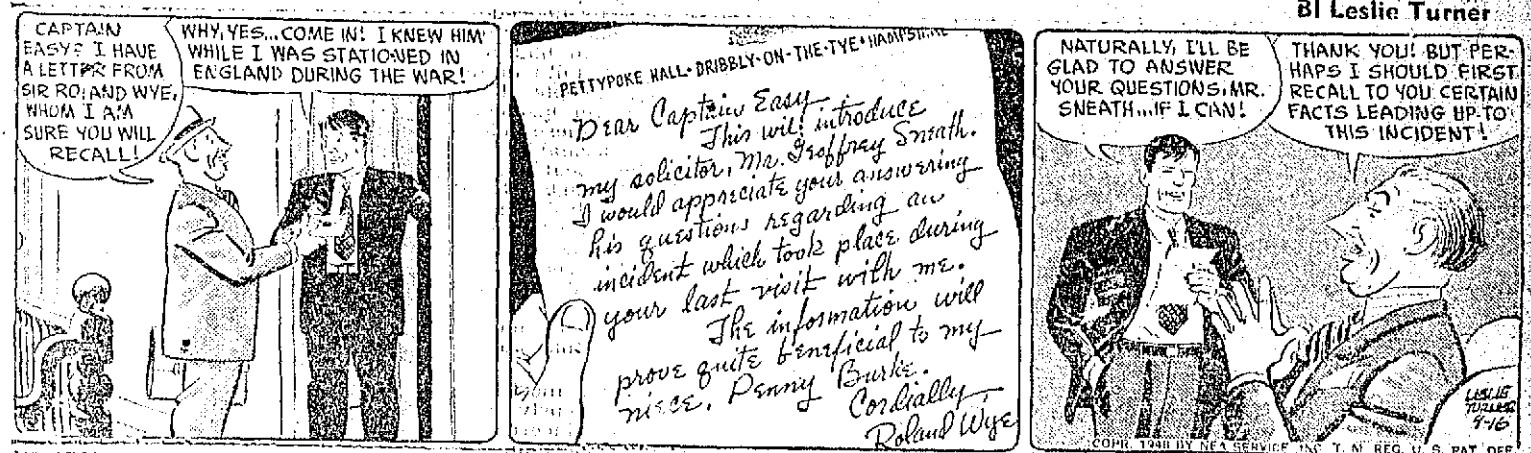 BI Leslie Turner
CAPTAIN
EASY? I HAVE
A LETTER FROM
SIR ROLAND WYE,
WHOM I AM
SURE YOU WILL
RECALL!
WHY, YES...COME IN! I KNEW HIM
WHILE I WAS STATIONED IN
ENGLAND DURING THE WAR!
PETTYPOKE HALL • DRIBBLY-ON-THE-TYE • HAMPSHIRE
Dear Captain Easy
This will introduce
my solicitor, Mr. Geoffrey Sneath.
I would appreciate your answering
his questions regarding an
incident which took place during
your last visit with me.
The information will
prove quite beneficial to my
niece, Penny Burke.
Cordially
Roland Wye
NATURALLY, I'LL BE
GLAD TO ANSWER
YOUR QUESTIONS, MR.
SNEATH...IF I CAN!
THANK YOU! BUT PER-
HAPS I SHOULD FIRST
RECALL TO YOU CERTAIN
FACTS LEADING UP TO
THIS INCIDENT!
LESLIE
TURNER
9-16
COPR. 1948 BY NEA SERVICE, INC. T. M. REG. U. S. PAT. OFF.